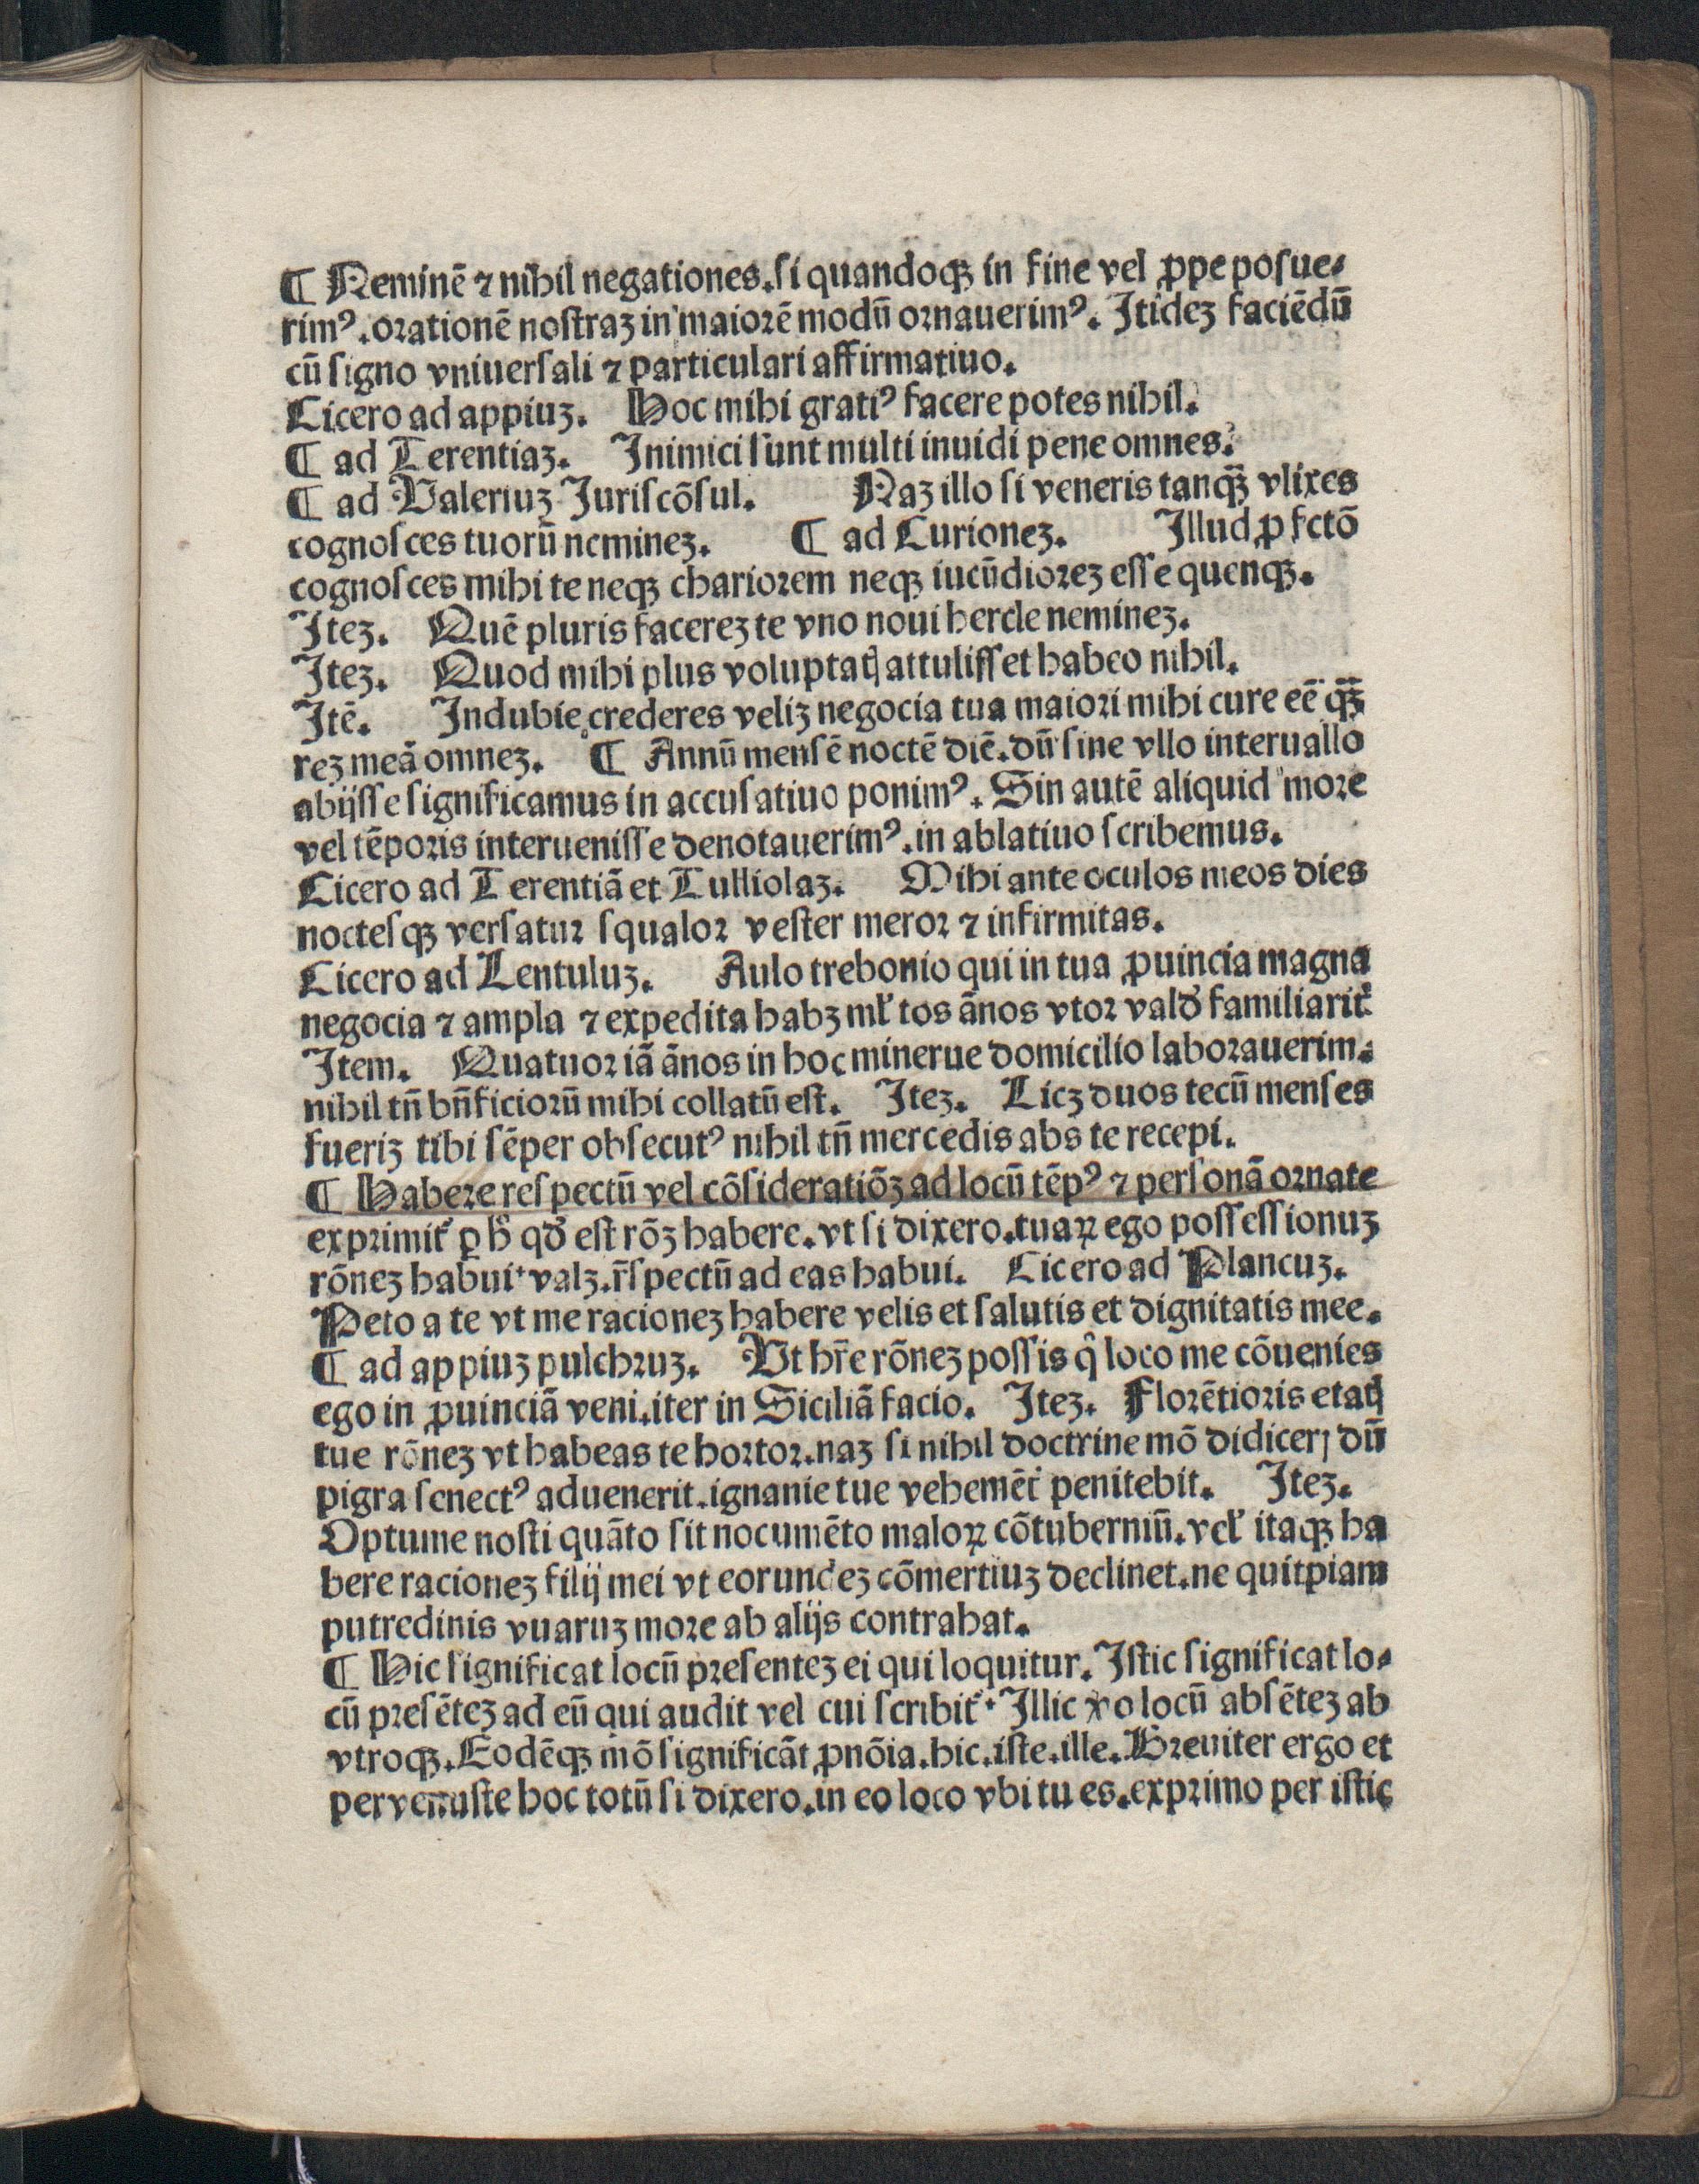 ¶ Neminē ⁊ nihil negationes.ſi quandoqꝫ in fine vel ꝓpe poſue⸗
rimꝰ.orationē noſtraꝫ in maiorē modū ornauerimꝰ. Itideꝫ faciēdū
cū ſigno vniuerſali ⁊ particulari affirmatiuo.
Cicero ad appiuꝫ. Hoc mihi gratiꝰ facere potes nihil.
¶ ad Terentiaꝫ. Inimici ſunt multi inuidi pene omnes.
¶ ad Valeriuꝫ Juriſcōſul. Naꝫ illo ſi veneris tanqꝫ̄ vlixes
cognoſces tuorū neminez. ¶ ad Curionez. Illud ꝓfctō
cognoſces mihi te neqꝫ chariorem neqꝫ iucūdiorez eſſe quenqꝫ.
Itez. Quē pluris facerez te vno noui hercle neminez.
Itez. Quod mihi plus voluptaꝭ attuliſſet habeo nihil.
Itē. Indubie crederes veliꝫ negocia tua maiori mihi cure eē qꝫ̄
rez meā omnez. ¶ Annū menſē noctē diē.dū ſine vllo interuallo
abijſſe ſignificamus in accuſatiuo ponimꝰ. Sin autē aliquid more
vel tēporis interueniſſe denotauerimꝰ.in ablatiuo ſcribemus.
Cicero ad Terentiā et Tulliolaꝫ. Mihi ante oculos meos dies
nocteſqꝫ verſatur ſqualor veſter meror ⁊ infirmitas.
Cicero ad Lentuluꝫ. Aulo trebonio qui in tua ꝓuincia magna
negocia ⁊ ampla ⁊ expedita habꝫ ml̓tos ānos vtor vald̓ familiarit̓
Item. Quatuor iā ānos in hoc minerue domicilio laborauerim.
nihil tn̄ bn̄ficiorū mihi collatū eſt. Itez. Licꝫ duos tecū menſes
fueriꝫ tibi ſēper obſecutꝰ nihil tn̄ mercedis abs te recepi.
¶ Habere reſpectū vel cōſideratiōꝫ ad locū tēpꝰ ⁊ perſonā ornate
exprimit̓ ꝑ h̓ qd̓ eſt rōꝫ habere.vt ſi dixero.tuaꝝ ego poſſeſſionuꝫ
rōnez habui.valꝫ.r̄ſpectū ad eas habui. Cicero ad Plancuꝫ.
Peto a te vt me racionez habere velis et ſalutis et dignitatis mee.
¶ ad appiuꝫ pulchruꝫ. Vt hr̄e rōnez poſſis qͦ loco me cōuenies
ego in ꝓuinciā veni.iter in Siciliā facio. Itez. Florētioris etaꝭ
tue rōnez vt habeas te hortor.naꝫ ſi nihil doctrine mō didicerꝭ dū
pigra ſenectꝰ aduenerit.ignanie tue vehemēt̓ penitebit. Itez.
Optume noſti quāto ſit nocumēto maloꝝ cōtuberniū.vel̓ itaqꝫ ha
bere racionez filij mei vt eorundez cōmertiuꝫ declinet.ne quitpiam
putredinis vuaruꝫ more ab alijs contrahat.
¶ Hic ſignificat locū preſentez ei qui loquitur. Iſtic ſignificat lo⸗
cū preſētez ad eū qui audit vel cui ſcribit̓. Illic v̓o locū abſētez ab
vtroqꝫ.Eodēqꝫ mō ſignificāt ꝓnōia.hic.iſte.ille.Breuiter ergo et
pervenuſte hoc totū ſi dixero.in eo loco vbi tu es.exprimo per iſtic